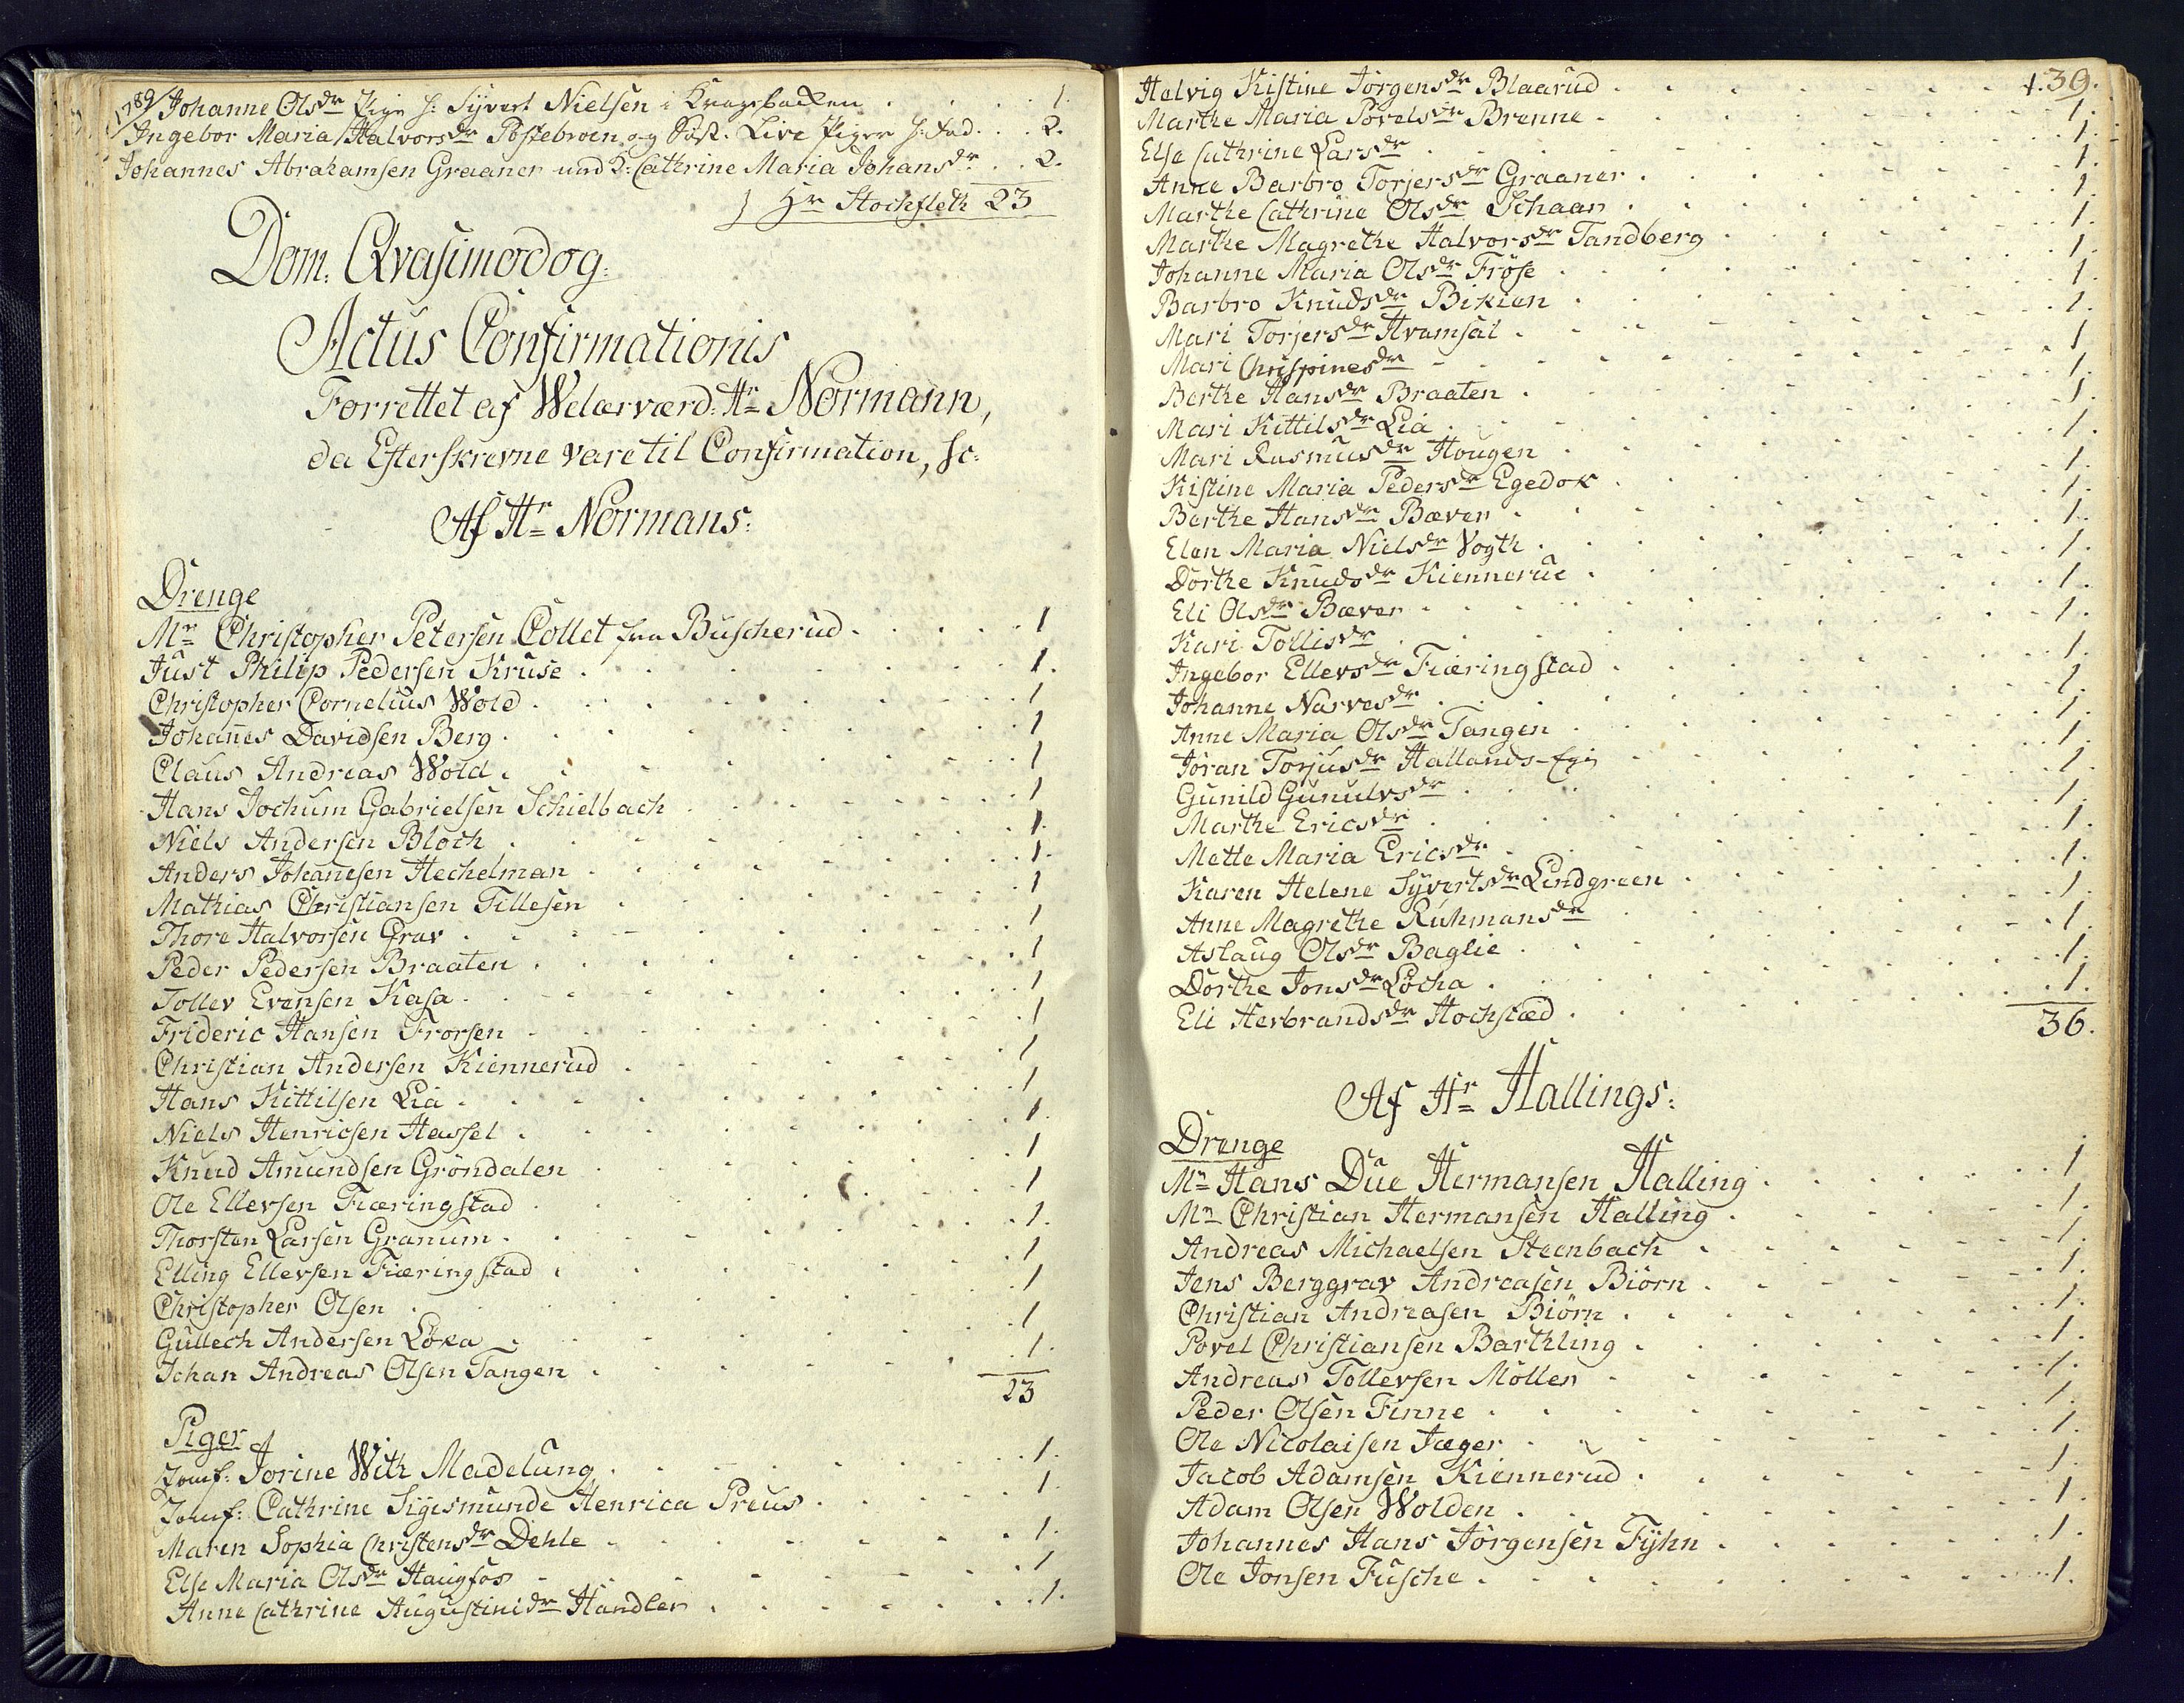 1789 Johanne Olsdr Pige h: Syvert Nielsen i
Ingebor Maria Halvorsdr Postebroen og Søst. Live Piger 2.
Johannes Abrahamsen Graaner und K: Cathrine Maria Johansdr . . 2.
Hr Stochfleth 23
Dom. Qvasimodog:
Actus Confirmationis
Forrettet af Welærværd: Hr Normann,
da Efterskrevne vare til Confirmation, sc:
Af Hr Normans:
Drenge
Mr Christopher Petersen Collet fra Buscherud . . . . 1
Just Philip Pedersen Kruse . . . . 1.
Christopher Cornelius Wold . . . . 1
Johannes Davidsen Berg . . . . 1
Claus Andreas Wold . . . . 1
Hans Jochum Gabrielsen Schielbach . . . . 1
Niels Andersen Bloch . . . . 1.
Anders Johanesen Hechelman . . . . 1.
Mathias Christiansen Tillesen . . . . 1
Thore Halvorsen Grav . . . . 1
Peder Pedersen Braaten . . . . 1
Tollev Evensen Kasa . . . . 1
Frideric Hansen Frorsen . . . . 1
Christian Andersen Kiennerud . . . . 1
Hans Kittilsen Lia . . . . 1
Niels Henricsen Hassel . . . . 1.
Knud Amundsen Gröndalen . . . . 1
Ole Ellevsen Fiæringstad . . . . 1
Thorsten Larsen Granum . . . . 1.
Elling Ellevsen Fiæringstad . . . . 1
Christopher Olsen . . . . 1
Gullech Andersen Löka . . . . 1
Johan Andreas Olsen Tangen . . . . 1.
23
Piger
Jomf: Jorine With Madelung . . . . 1.
Jomf: Cathrine Sigismunde Henrica Preus . . . . 1.
Maren Sophia Christensdr Dehle . . . . 1.
Else Maria Olsdr Haugfos . . . . 1
Anne Cathrine Augustinidr Handler . . . . 1.
Helvig Kistine Jörgensdr Blaarud . . . . 1. 39.
Marthe Maria Povelsdr Brenne . . . . 1.
Else Cathrine Larsdr . . . . 1.
Anne Barbro Torjersdr Graaner . . . . 1.
Marthe Cathrine Olsdr Schaar . . . . 1.
Marthe Magrethe Halvorsdr Tandberg . . . . 1.
Johanne Maria Olsdr Fröse . . . . 1.
Barbro Knudsdr Bikien . . . . 1.
Mari Torjersdr Hvamsal . . . . 1.
Mari Chrispinesdr . . . . 1
Berthe Hansdr Braaten . . . . 1.
Mari Kittilsdr Lia . . . . 1.
Mari Rasmusdr Hougen . . . . 1.
Kistine Maria Pedersdr Egedok . . . . 1.
Berthe Hansdr Bæver . . . . 1.
Elen Maria Nielsdr Vogth . . . . 1.
Dorthe Knudsdr Kiennerue . . . . 1.
Eli Olsdr Bæver . . . . 1.
Kari Tollisdr . . . . 1.
Ingebor Ellevsdr Fiæringstad . . . . 1.
Johanne Narvesdr . . . . 1.
Anne Maria Olsdr Tangen . . . . 1.
Joran Torjusdr Hallands-Eje . . . . 1.
Gunild Gunulvsdr . . . . 1.
Marthe Ericsdr . . . . 1.
Mette Maria Ericsdr . . . . 1.
Karen Helene Syvertsdr Lindgreen . . . . 1.
Anne Magrethe Ruhmansdr . . . . 1.
Aslaug Olsdr Baglie . . . . 1.
Dorthe Jonsdr Löcha . . . . 1.
Eli Herbrandsdr Hochstæd . . . . 1.
36.
Af Hr Hallings:
Drenge
Mr Hans Due Hermansen Halling . . . . 1
Mr Christian Hermansen Halling . . . . 1.
Andreas Michaelsen Steenbach . . . . 1.
Jens Berggrav Andreasen Biörn . . . . 1.
Christian Andreasen Biörn . . . . 1.
Povel Christiansen Barthling . . . . 1.
Andreas Tollevsen Möller . . . . 1.
Peder Olsen Finne . . . . 1.
Ole Nicolaisen Jæger . . . . 1.
Jacob Adamsen Kiennerud . . . . 1.
Adam Olsen Wolden . . . . 1.
Johannes Hans Jörgensen Fyhn . . . . 1.
Ole Jonsen Fusche . . . . 1.